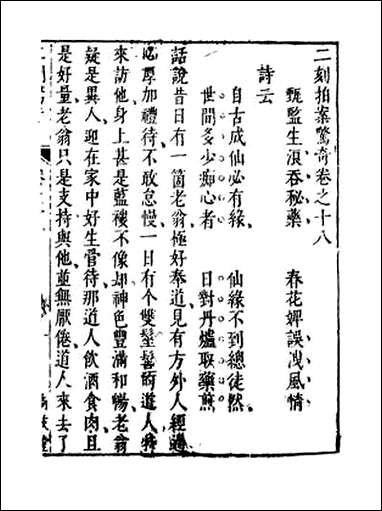 二刻拍案驚奇卷之十八
甄監生浪吞秘藥　春花婢誤洩風情
詩云
自古成仙必有緣　仙緣不到總徒然
世間多少痴心者　日對丹爐取藥煎
話說昔日有一箇老翁極好奉道見有方外人經過
必厚加禮待不敢怠慢一日有个雙髽髻的道人特
來訪他身上甚是藍褸不像却神色豐滿和暢老翁
疑是異人迎在家中好生管待那道人飲酒食肉且
是好量老翁只是支持與他並無厭倦道人來去了